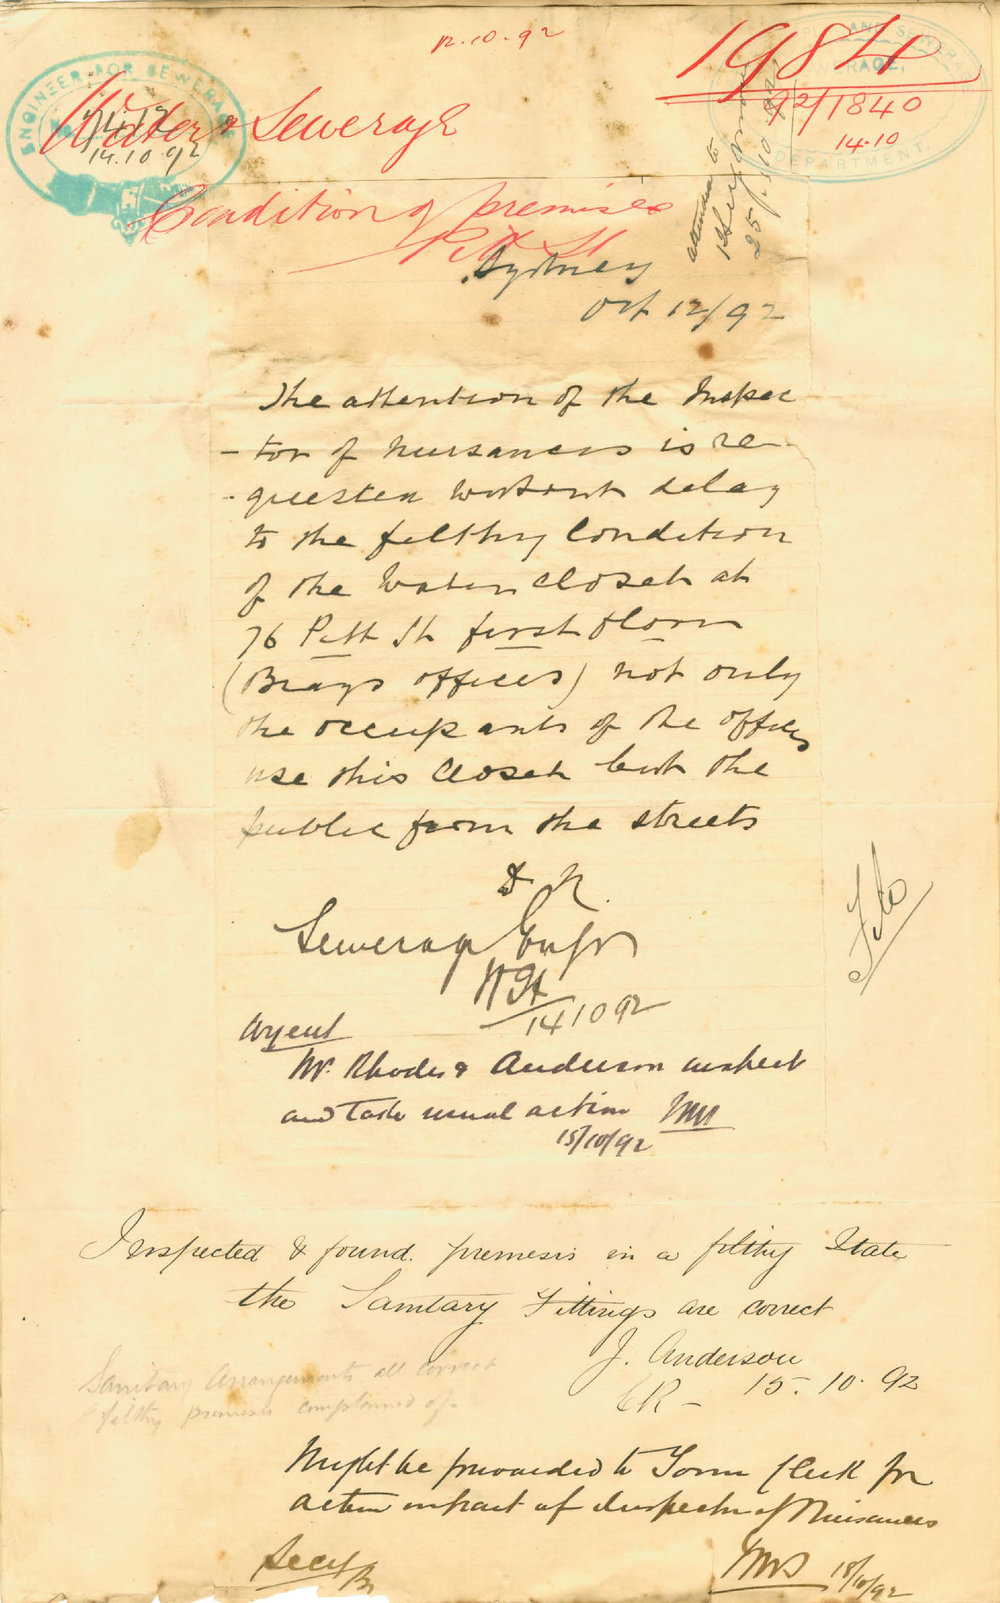 12.10.92
1984
92/1840
14.10
ENGINEER FOR SEWERAGE
14.10.92
Water & Sewerage
AND SEWERAGE
DEPARTMENT.
Condition of premises
Pitt St
attended to
25/10/92
Sydney
Oct 12/92
The attention of the Inspec
-tor of nuisances is re-
-quested without delay
to the filthy condition
of the Water closet at
76 Pitt St first floor
(Brays offices) not only
the occupants of the offices
use this closet but the
public from the streets
Sewerage Engr
14 10 92
File
Urgent
Mr. Rhodes & Anderson inspect
and take usual action
15/10/92
Inspected & found premesis in a filthy State
the Sanitary Fittings are correct
J. Anderson
15.10.92
Sanitary Arrangements all correct
filthy premises complained of.
Might be forwarded to Town Clerk for
action on part of Inspector of Nuisances
Secy
18/10/92